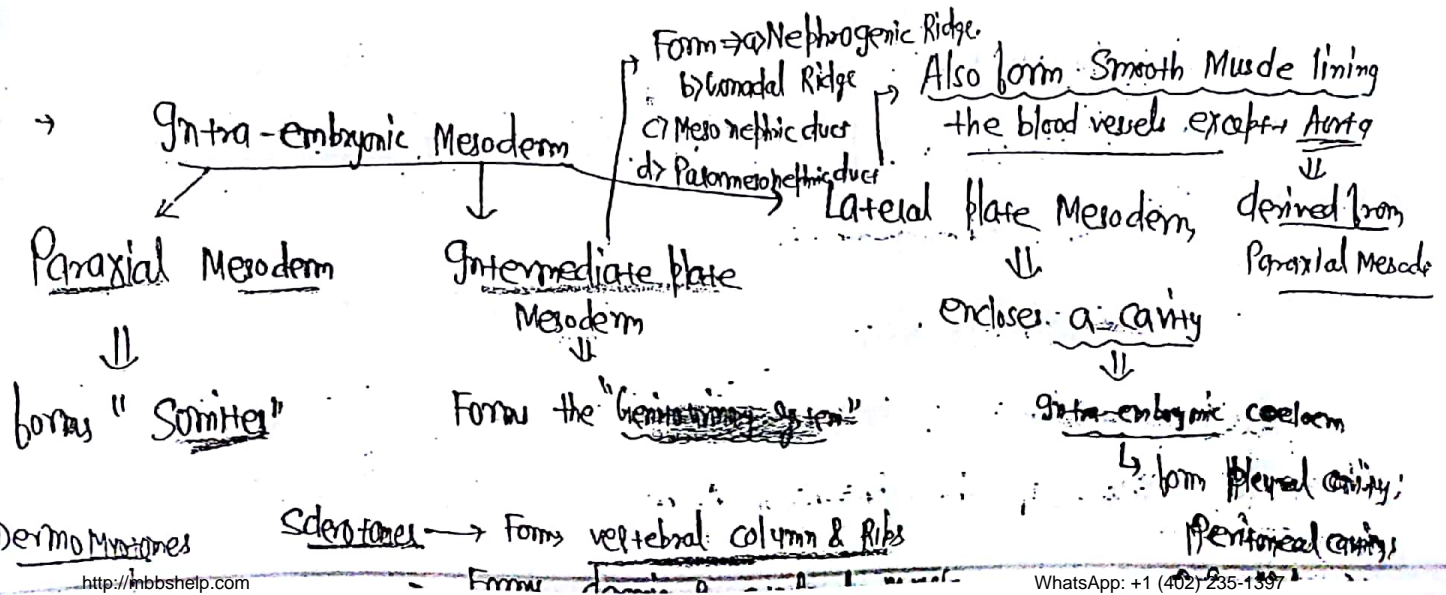 Form ⇒ a) Nephrogenic Ridge.
b) Gonadal Ridge
c) Mesonephric duct
d) Paramesonephric duct
→ Also form Smooth Muscle lining
the blood vessels except → Aorta
⇓
derived from
Paraxial Mesode
→ Intra-embryonic Mesoderm
Paraxial Mesoderm
⇓
forms "Somites"
Intermediate plate
Mesoderm
⇓
Forms the "Genitourinary System"
Lateral plate Mesoderm
⇓
encloses a cavity
⇓
Intra-embryonic coelom
↳ form Pleural cavity,
Peritoneal cavity
DermoMyotomes
Sclerotomes → Forms vertebral column & Ribs
- Forms
http://mbbshelp.com
WhatsApp: +1 (402) 235-1397